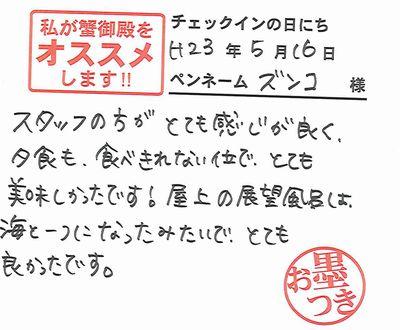 私が蟹御殿を
オススメ
します!!
チェックインの日にち
H23年5月16日
ペンネーム ズンコ 様
スタッフの方が とても感じが良く、
夕食も、食べきれない位で、とても
美味しかったです！屋上の展望風呂は、
海と一つになったみたいで、とても
良かったです。
お墨つき